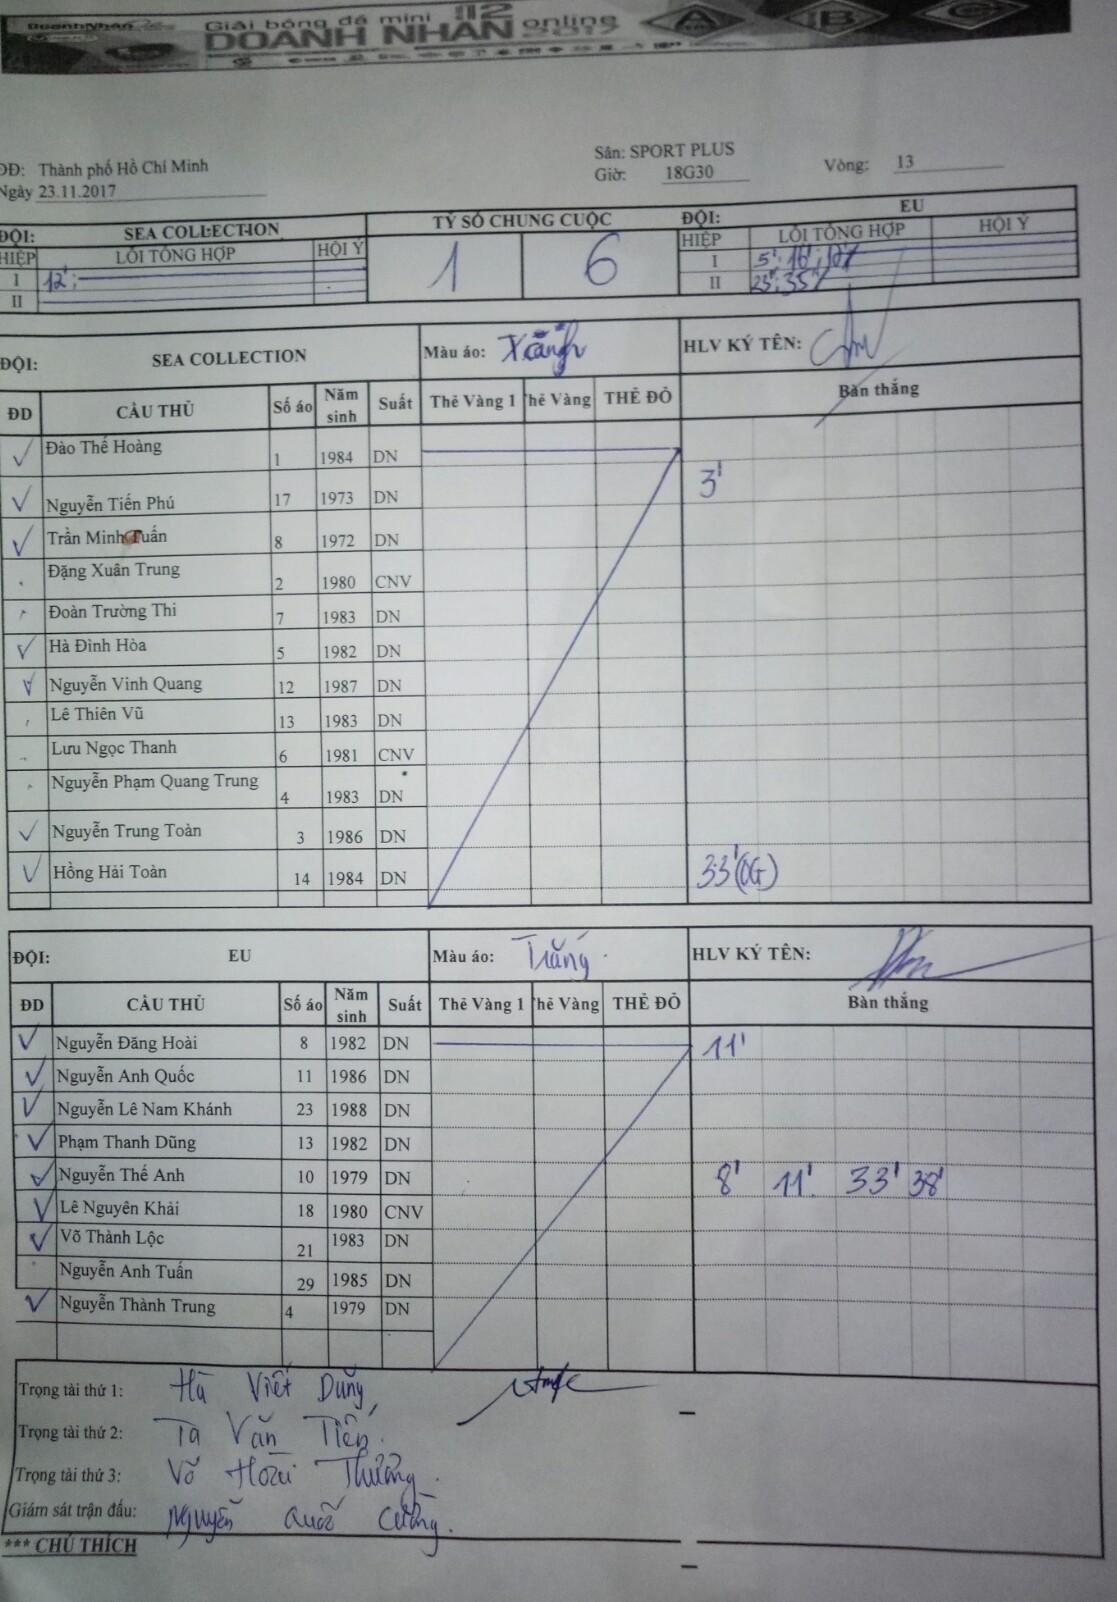 DoanhNhân
Giải bóng đá mini 112
DOANH NHÂN online 2017
A B C
ĐĐ: Thành phố Hồ Chí Minh
Sân: SPORT PLUS
Giờ: 18G30
Vòng: 13
Ngày 23.11.2017
ĐỘI: SEA COLLECTION TỶ SỐ CHUNG CUỘC ĐỘI: EU
HIỆP LỖI TỔNG HỢP HỘI Ý 1 6 HIỆP LỖI TỔNG HỢP HỘI Ý
I 12'; I 5'; 16'; 17'
II II 23'; 35'
ĐỘI: SEA COLLECTION Màu áo: Xanh HLV KÝ TÊN:
ĐD CẦU THỦ Số áo Năm sinh Suất Thẻ Vàng 1 Thẻ Vàng THẺ ĐỎ Bàn thắng
Đào Thế Hoàng 1 1984 DN
Nguyễn Tiến Phú 17 1973 DN 3'
Trần Minh Tuấn 8 1972 DN
Đặng Xuân Trung 2 1980 CNV
Đoàn Trường Thi 7 1983 DN
Hà Đình Hòa 5 1982 DN
Nguyễn Vinh Quang 12 1987 DN
Lê Thiên Vũ 13 1983 DN
Lưu Ngọc Thanh 6 1981 CNV
Nguyễn Phạm Quang Trung 4 1983 DN
Nguyễn Trung Toàn 3 1986 DN
Hồng Hải Toàn 14 1984 DN 33'(OG)
ĐỘI: EU Màu áo: Trắng HLV KÝ TÊN:
ĐD CẦU THỦ Số áo Năm sinh Suất Thẻ Vàng 1 Thẻ Vàng THẺ ĐỎ Bàn thắng
Nguyễn Đăng Hoài 8 1982 DN 11'
Nguyễn Anh Quốc 11 1986 DN
Nguyễn Lê Nam Khánh 23 1988 DN
Phạm Thanh Dũng 13 1982 DN
Nguyễn Thế Anh 10 1979 DN 8' 11' 33' 38'
Lê Nguyên Khải 18 1980 CNV
Võ Thành Lộc 21 1983 DN
Nguyễn Anh Tuấn 29 1985 DN
Nguyễn Thành Trung 4 1979 DN
Trọng tài thứ 1: Hà Viết Dũng
Trọng tài thứ 2: Tạ Văn Tiến.
Trọng tài thứ 3: Võ Hoài Thưởng.
Giám sát trận đấu: Nguyễn Quốc Cường.
*** CHÚ THÍCH